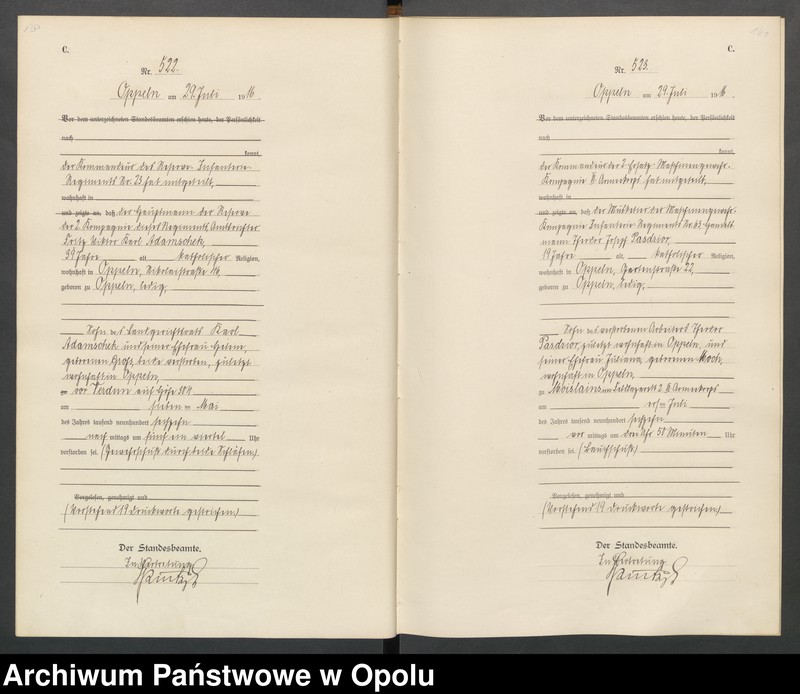 C.
Nr. 522.
Oppeln am 29. Juli 1916.
Vor dem unterzeichneten Standesbeamten erschien heute, der Persönlichkeit
nach
kannt,
der Kommandeur des Reserve-Infanterie-
Regiments Nr. 23 hat mitgeteilt,
wohnhaft in
und zeigte an, daß der Hauptmann der Reserve
der 2. Kompagnie dieses Regiments, Amtsrichter
Fritz Viktor Karl Adamschek,
39 Jahre alt, katholischer Religion,
wohnhaft in Oppeln, Nikolaistraße
geboren zu Oppeln, ledig,
Sohn des Landgerichtsrats Karl
Adamschek und seiner Ehefrau
geborenen beide verstorben, zuletzt
wohnhaft in Oppeln,
vor Verdun auf Höhe 304
am sieben ten Mai
des Jahres tausend neunhundert sechzehn
nach mittags um fünf ein viertel Uhr
verstorben sei. (Gewehrschuß durch beide Schläfen)
Vorgelesen, genehmigt und
(Vorstehend 19 Druckworte gestrichen)
Der Standesbeamte.
In Vertretung
C.
Nr. 523.
Oppeln am 29. Juli 1916.
Vor dem unterzeichneten Standesbeamten erschien heute, der Persönlichkeit
nach
kannt,
der Kommandeur der 2. Ersatz-Maschinengewehr-
Kompagnie VI. Armeekorps hat mitgeteilt,
wohnhaft in
und zeigte an, daß der Musketier der Maschinengewehr-
Kompagnie Infanterie-Regiments Nr. 63
mann Theodor Josef Pasdzior,
19 Jahre alt, katholischer Religion,
wohnhaft in Oppeln, Gartenstraße 22,
geboren zu Oppeln, ledig,
Sohn des verstorbenen Arbeiters Theodor
Pasdzior, zuletzt wohnhaft in Oppeln, und
seiner Ehefrau Juliana, geborenen
wohnhaft in Oppeln,
zu Moislains im Feldlazarett 2 VI. Armeekorps
am ersten Juli
des Jahres tausend neunhundert sechzehn
vor mittags um drei Uhr 50 Minuten Uhr
verstorben sei. (Bauchschuß)
Vorgelesen, genehmigt und
(Vorstehend 19 Druckworte gestrichen)
Der Standesbeamte.
In Vertretung
Archiwum Państwowe w Opolu